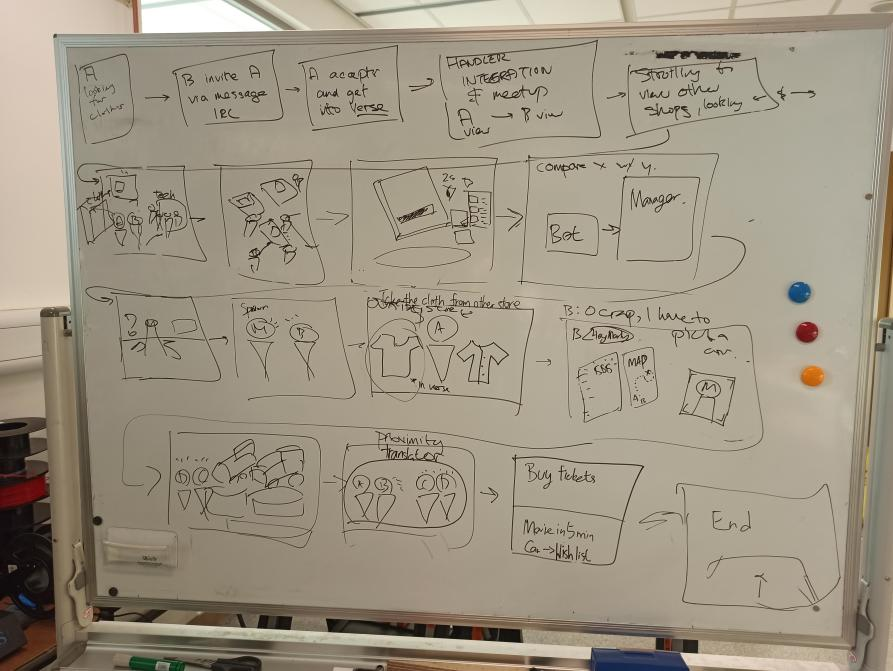 A
looking
for
clothes
B invite A
via message
IRC
A accepts
and get
into verse
HANDLER
INTEGRATION
& meetup
A → B view
view
Strolling to
view other
shops, looking
&
clothes
tech
A
B
2s
D
compare x w/ y.
Bot
Manager.
?
Spawn
M
B
Take the cloth from other store
A
*in verse
B: O crap, I have to
pick a
car...
B
MAP
A
M
C
Proximity
translator
A
B
C
D
Buy tickets
Movie in 5 min
Car → Wishlist
End